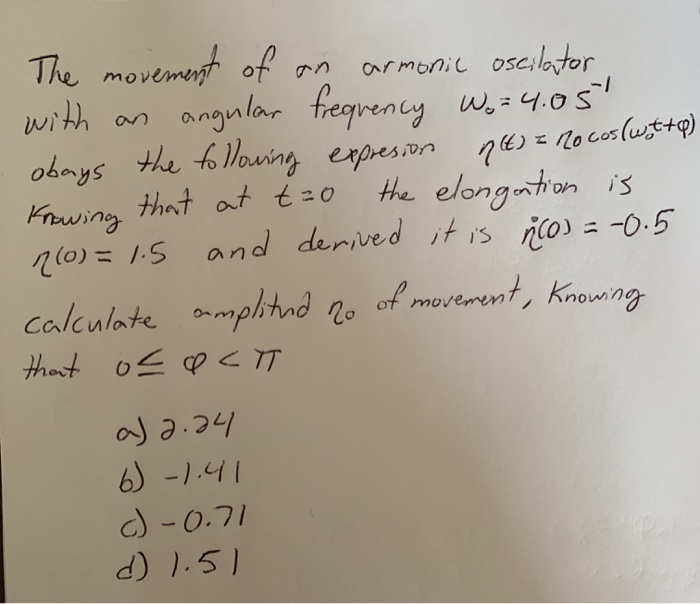 The movement of an armonic oscilator
with an angular frequency ω₀ = 4.0 s⁻¹
obays the following expresion η(t) = η₀ cos(ω₀t+φ)
Knowing that at t=0 the elongation is
η(0) = 1.5 and derived it is η̇(0) = -0.5
calculate amplitud η₀ of movement, Knowing
that 0 ≤ φ < π
a) 2.24
b) -1.41
c) -0.71
d) 1.51